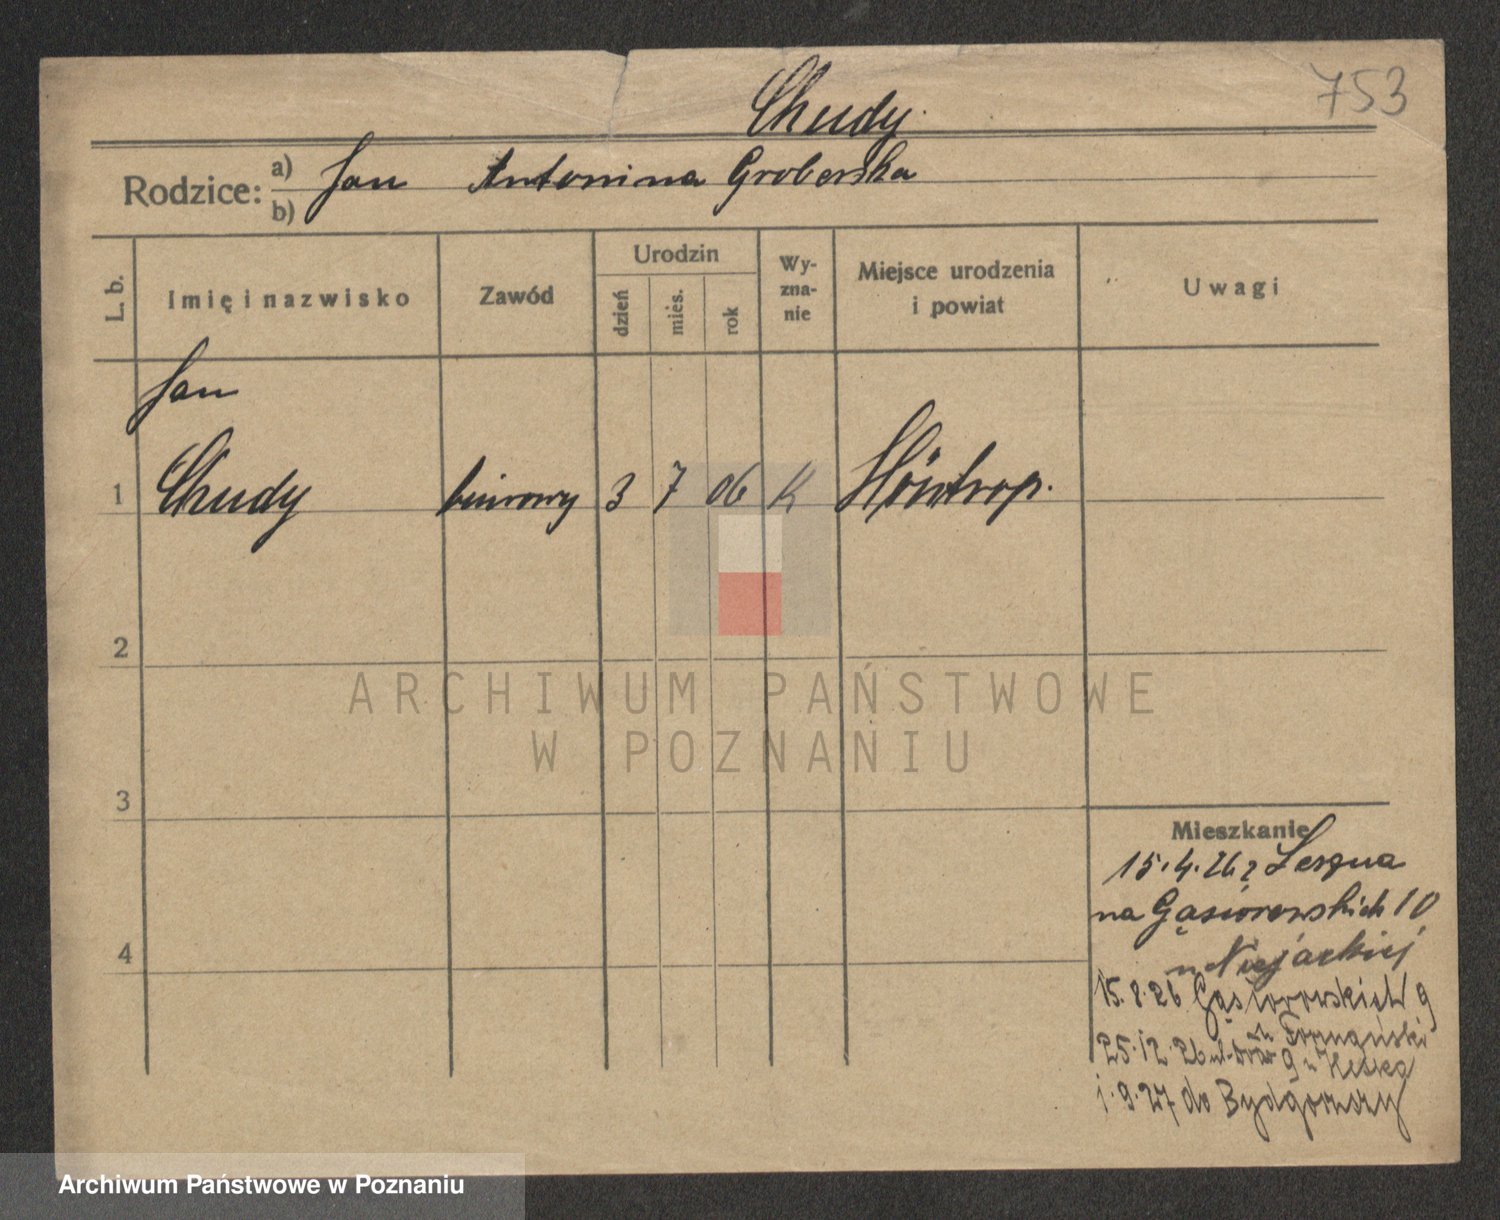 753
Chudy
Rodzice: a) b) Jan Antonina Groberska
L. b.
Imię i nazwisko
Zawód
Urodzin
dzień
mies.
rok
Wy-
zna-
nie
Miejsce urodzenia
i powiat
Uwagi
Jan
1 Chudy biurowy 3 7 06 K Höntrop.
2
ARCHIWUM PAŃSTWOWE
W POZNANIU
3
Mieszkanie
15.4.26 z Leszna
na Gąsiorowskich 10
4
15.8.26 Gąsiorowskich 9
25.12.26
1.9.27 do Bydgoszczy
Archiwum Państwowe w Poznaniu